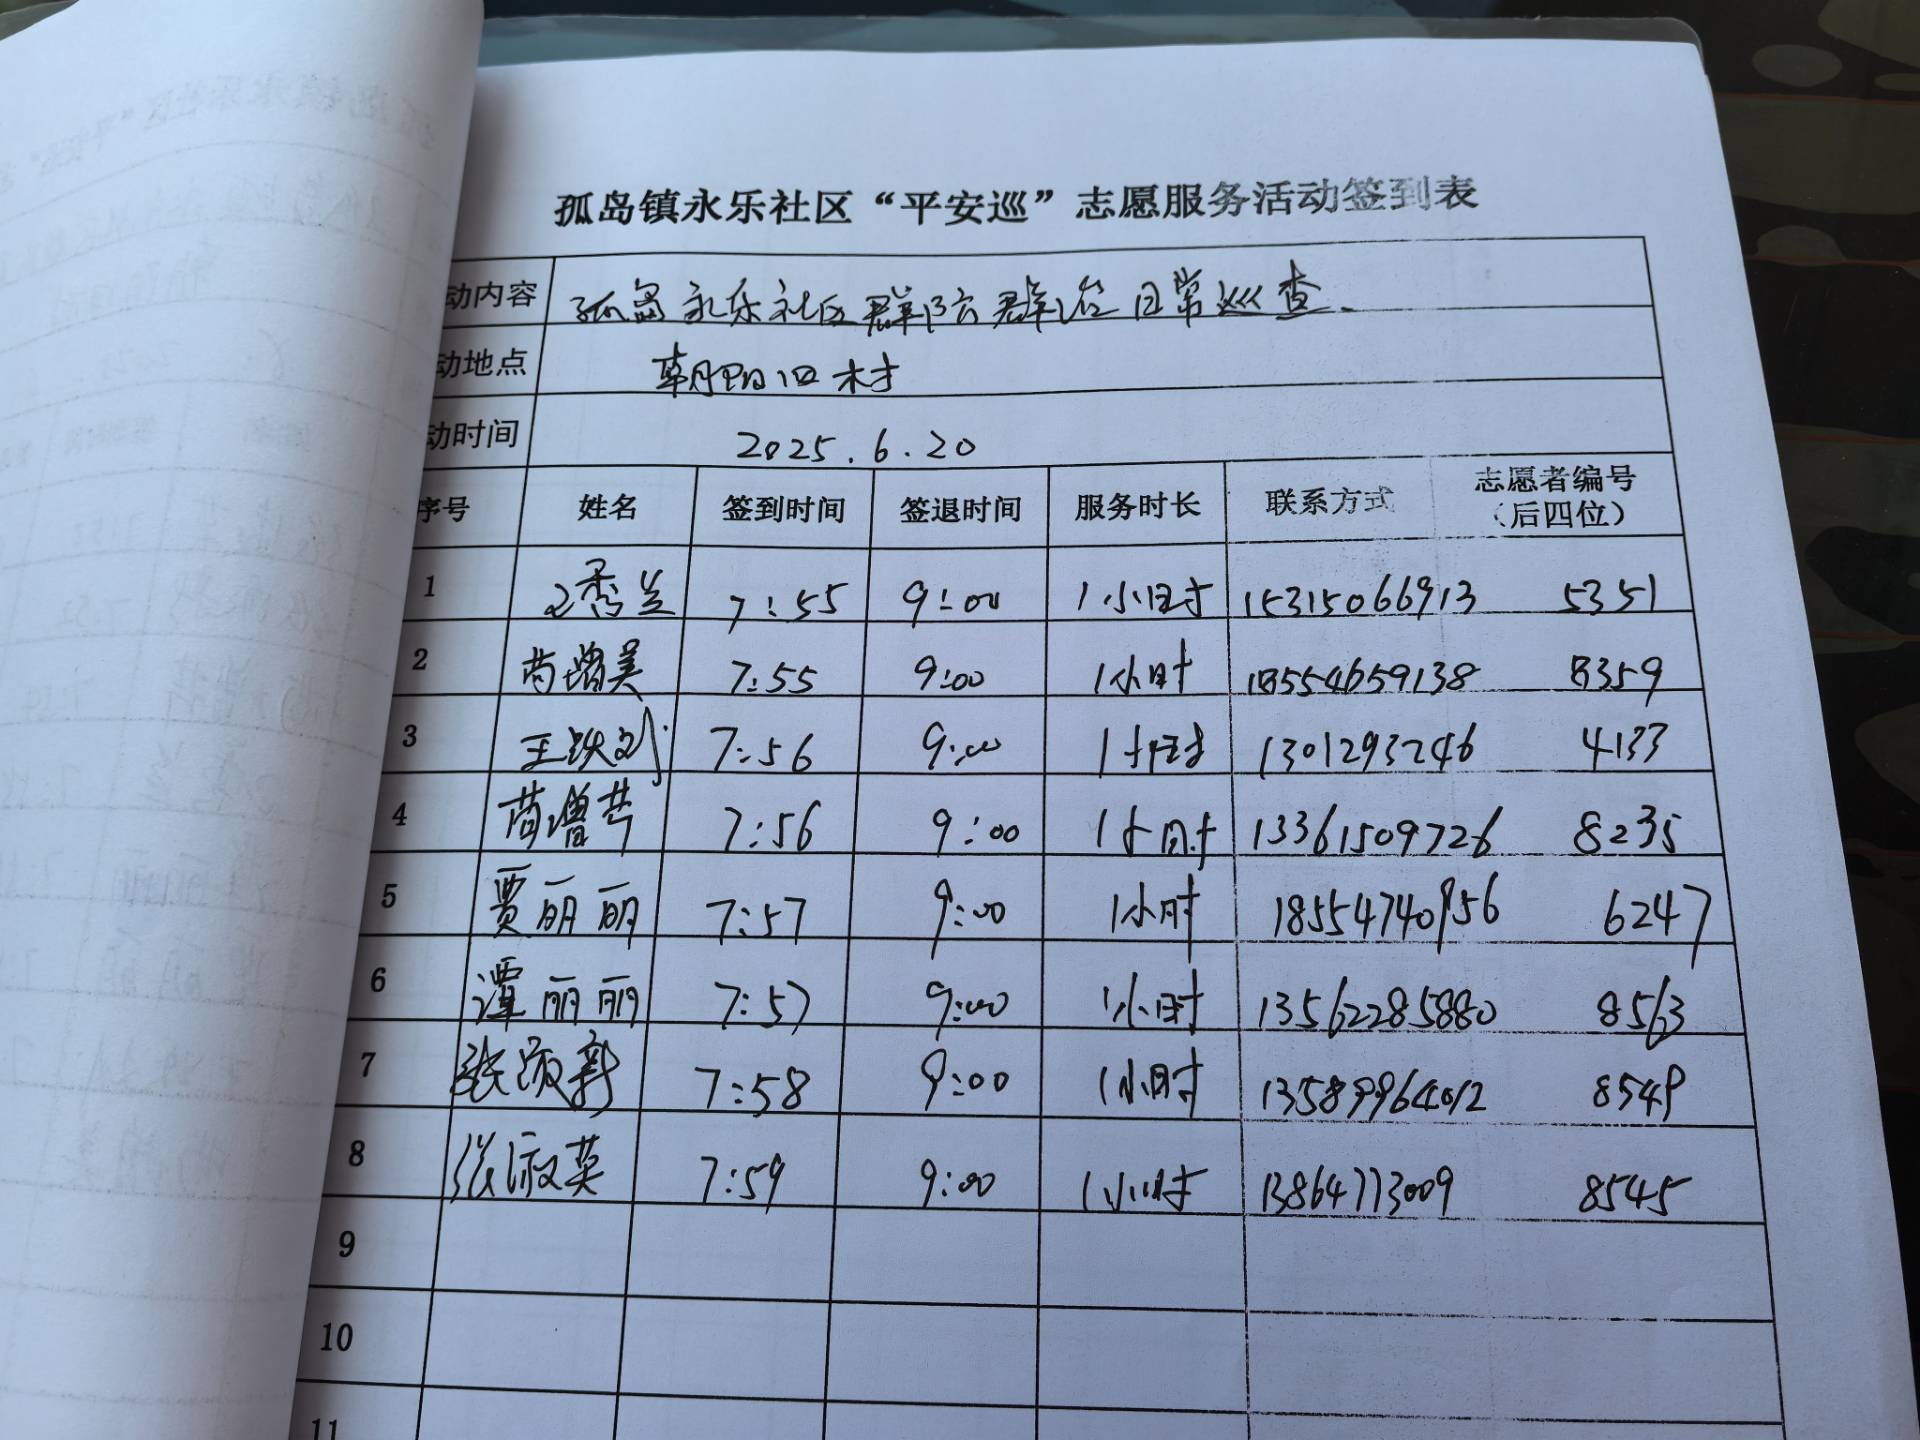 孤岛镇永乐社区“平安巡”志愿服务活动签到表
动内容 孤岛永乐社区群防群治日常巡查.
动地点 朝阳旧村
动时间 2025.6.20
序号 姓名 签到时间 签退时间 服务时长 联系方式 志愿者编号（后四位）
1 王秀兰 7:55 9:00 1小时 15315066913 5351
2 7:55 9:00 1小时 18554659138 8359
3 7:56 9:00 1小时 13012932746 4133
4 7:56 9:00 1小时 13361509726 8235
5 贾丽丽 7:57 9:00 1小时 18554740956 6247
6 谭丽丽 7:57 9:00 1小时 13562285880 8563
7 张 新 7:58 9:00 1小时 13589964012 8549
8 张淑英 7:59 9:00 1小时 13864773009 8545
9
10
11